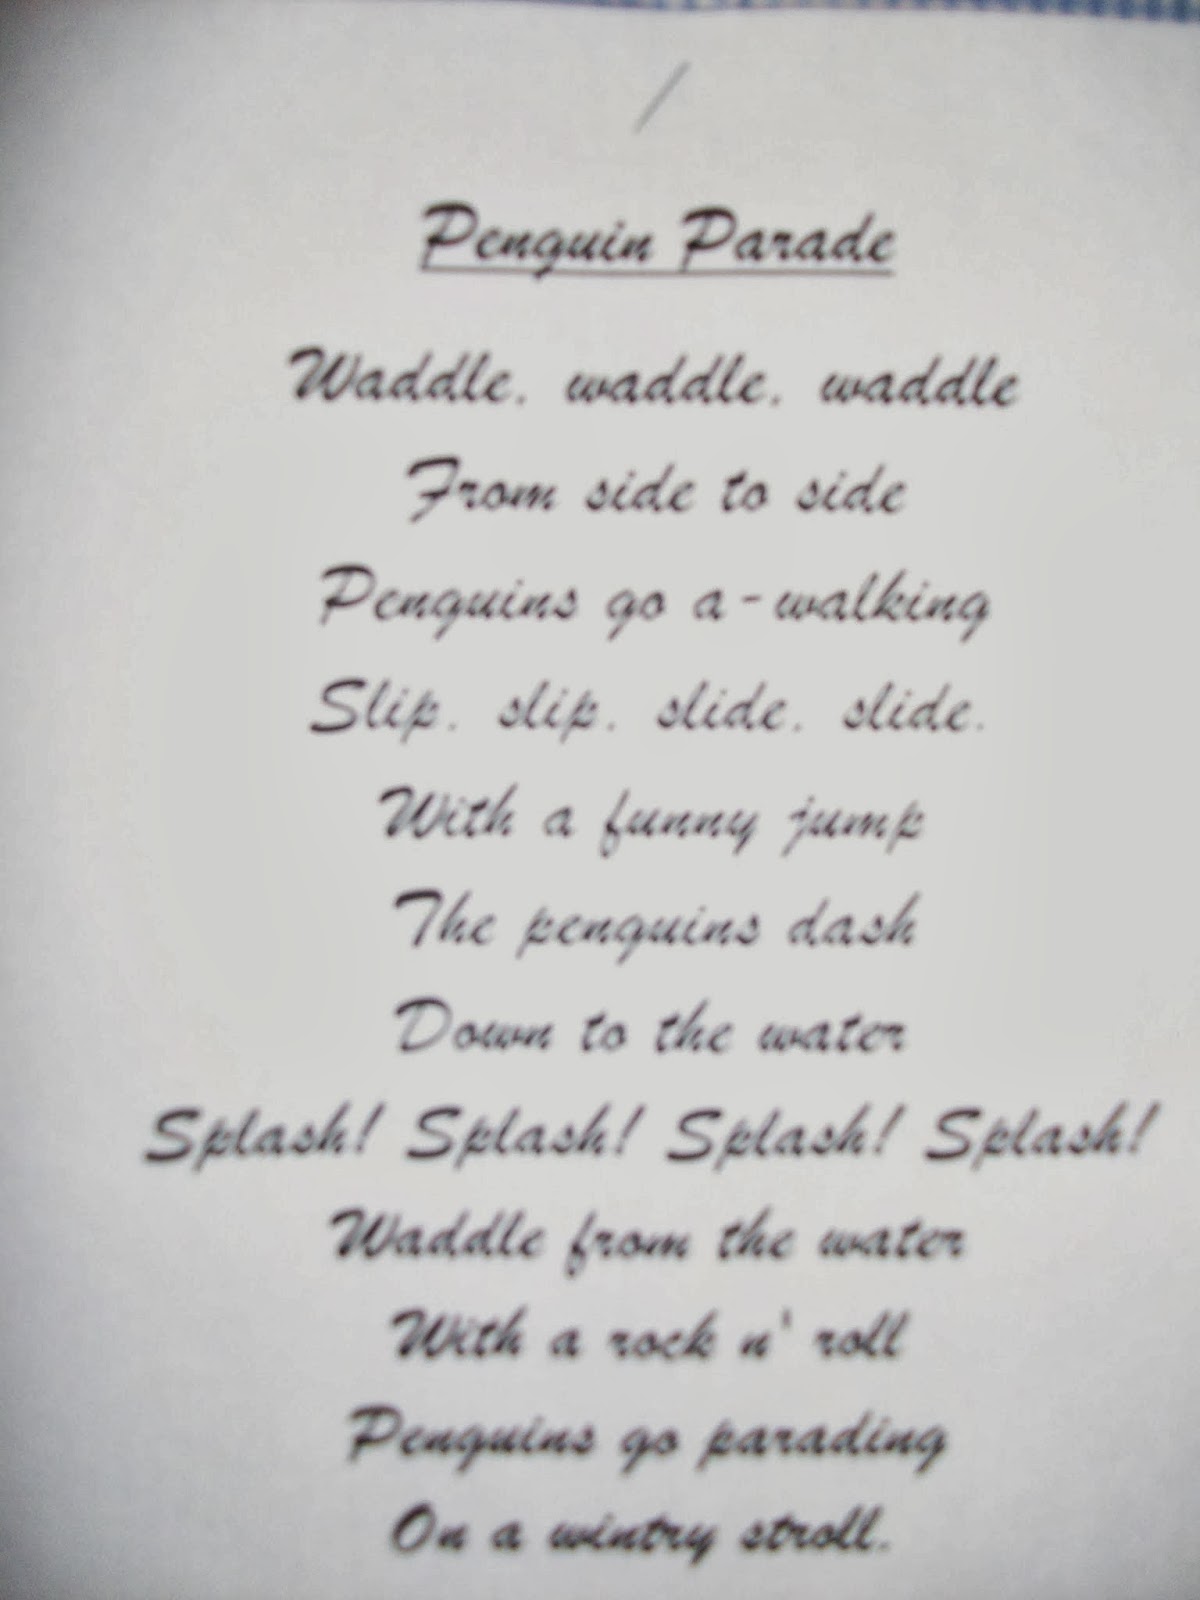 Penguin Parade
Waddle, waddle, waddle
From side to side
Penguins go a-walking
Slip, slip, slide, slide.
With a funny jump
The penguins dash
Down to the water
Splash! Splash! Splash! Splash!
Waddle from the water
With a rock n' roll
Penguins go parading
On a wintry stroll.